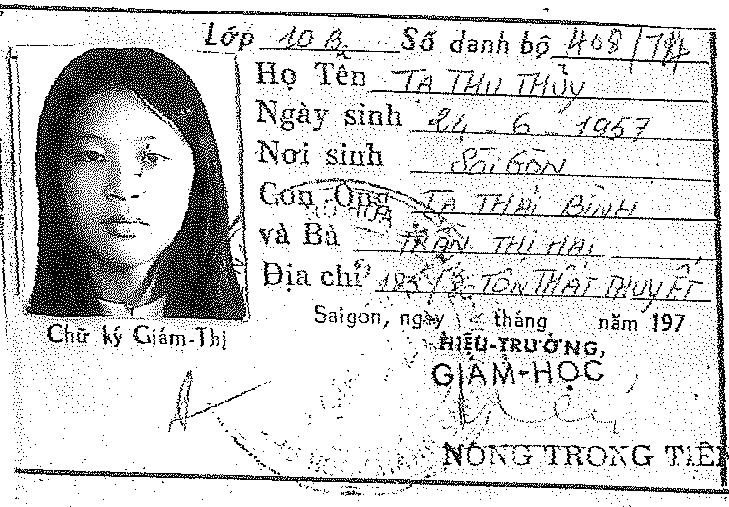 Lớp 10 B2 Số danh bộ 408/74
Họ Tên TẠ THU THỦY
Ngày sinh 24 - 6 - 1957
Nơi sinh SÀI GÒN
Con Ông TẠ THÁI BÌNH
và Bà TRẦN THỊ HAI
Địa chỉ TÔN THẤT THUYẾT
Saigon, ngày tháng năm 197
Chữ ký Giám-Thị
HIỆU-TRƯỞNG,
GIÁM-HỌC
NÔNG TRONG TIẾN